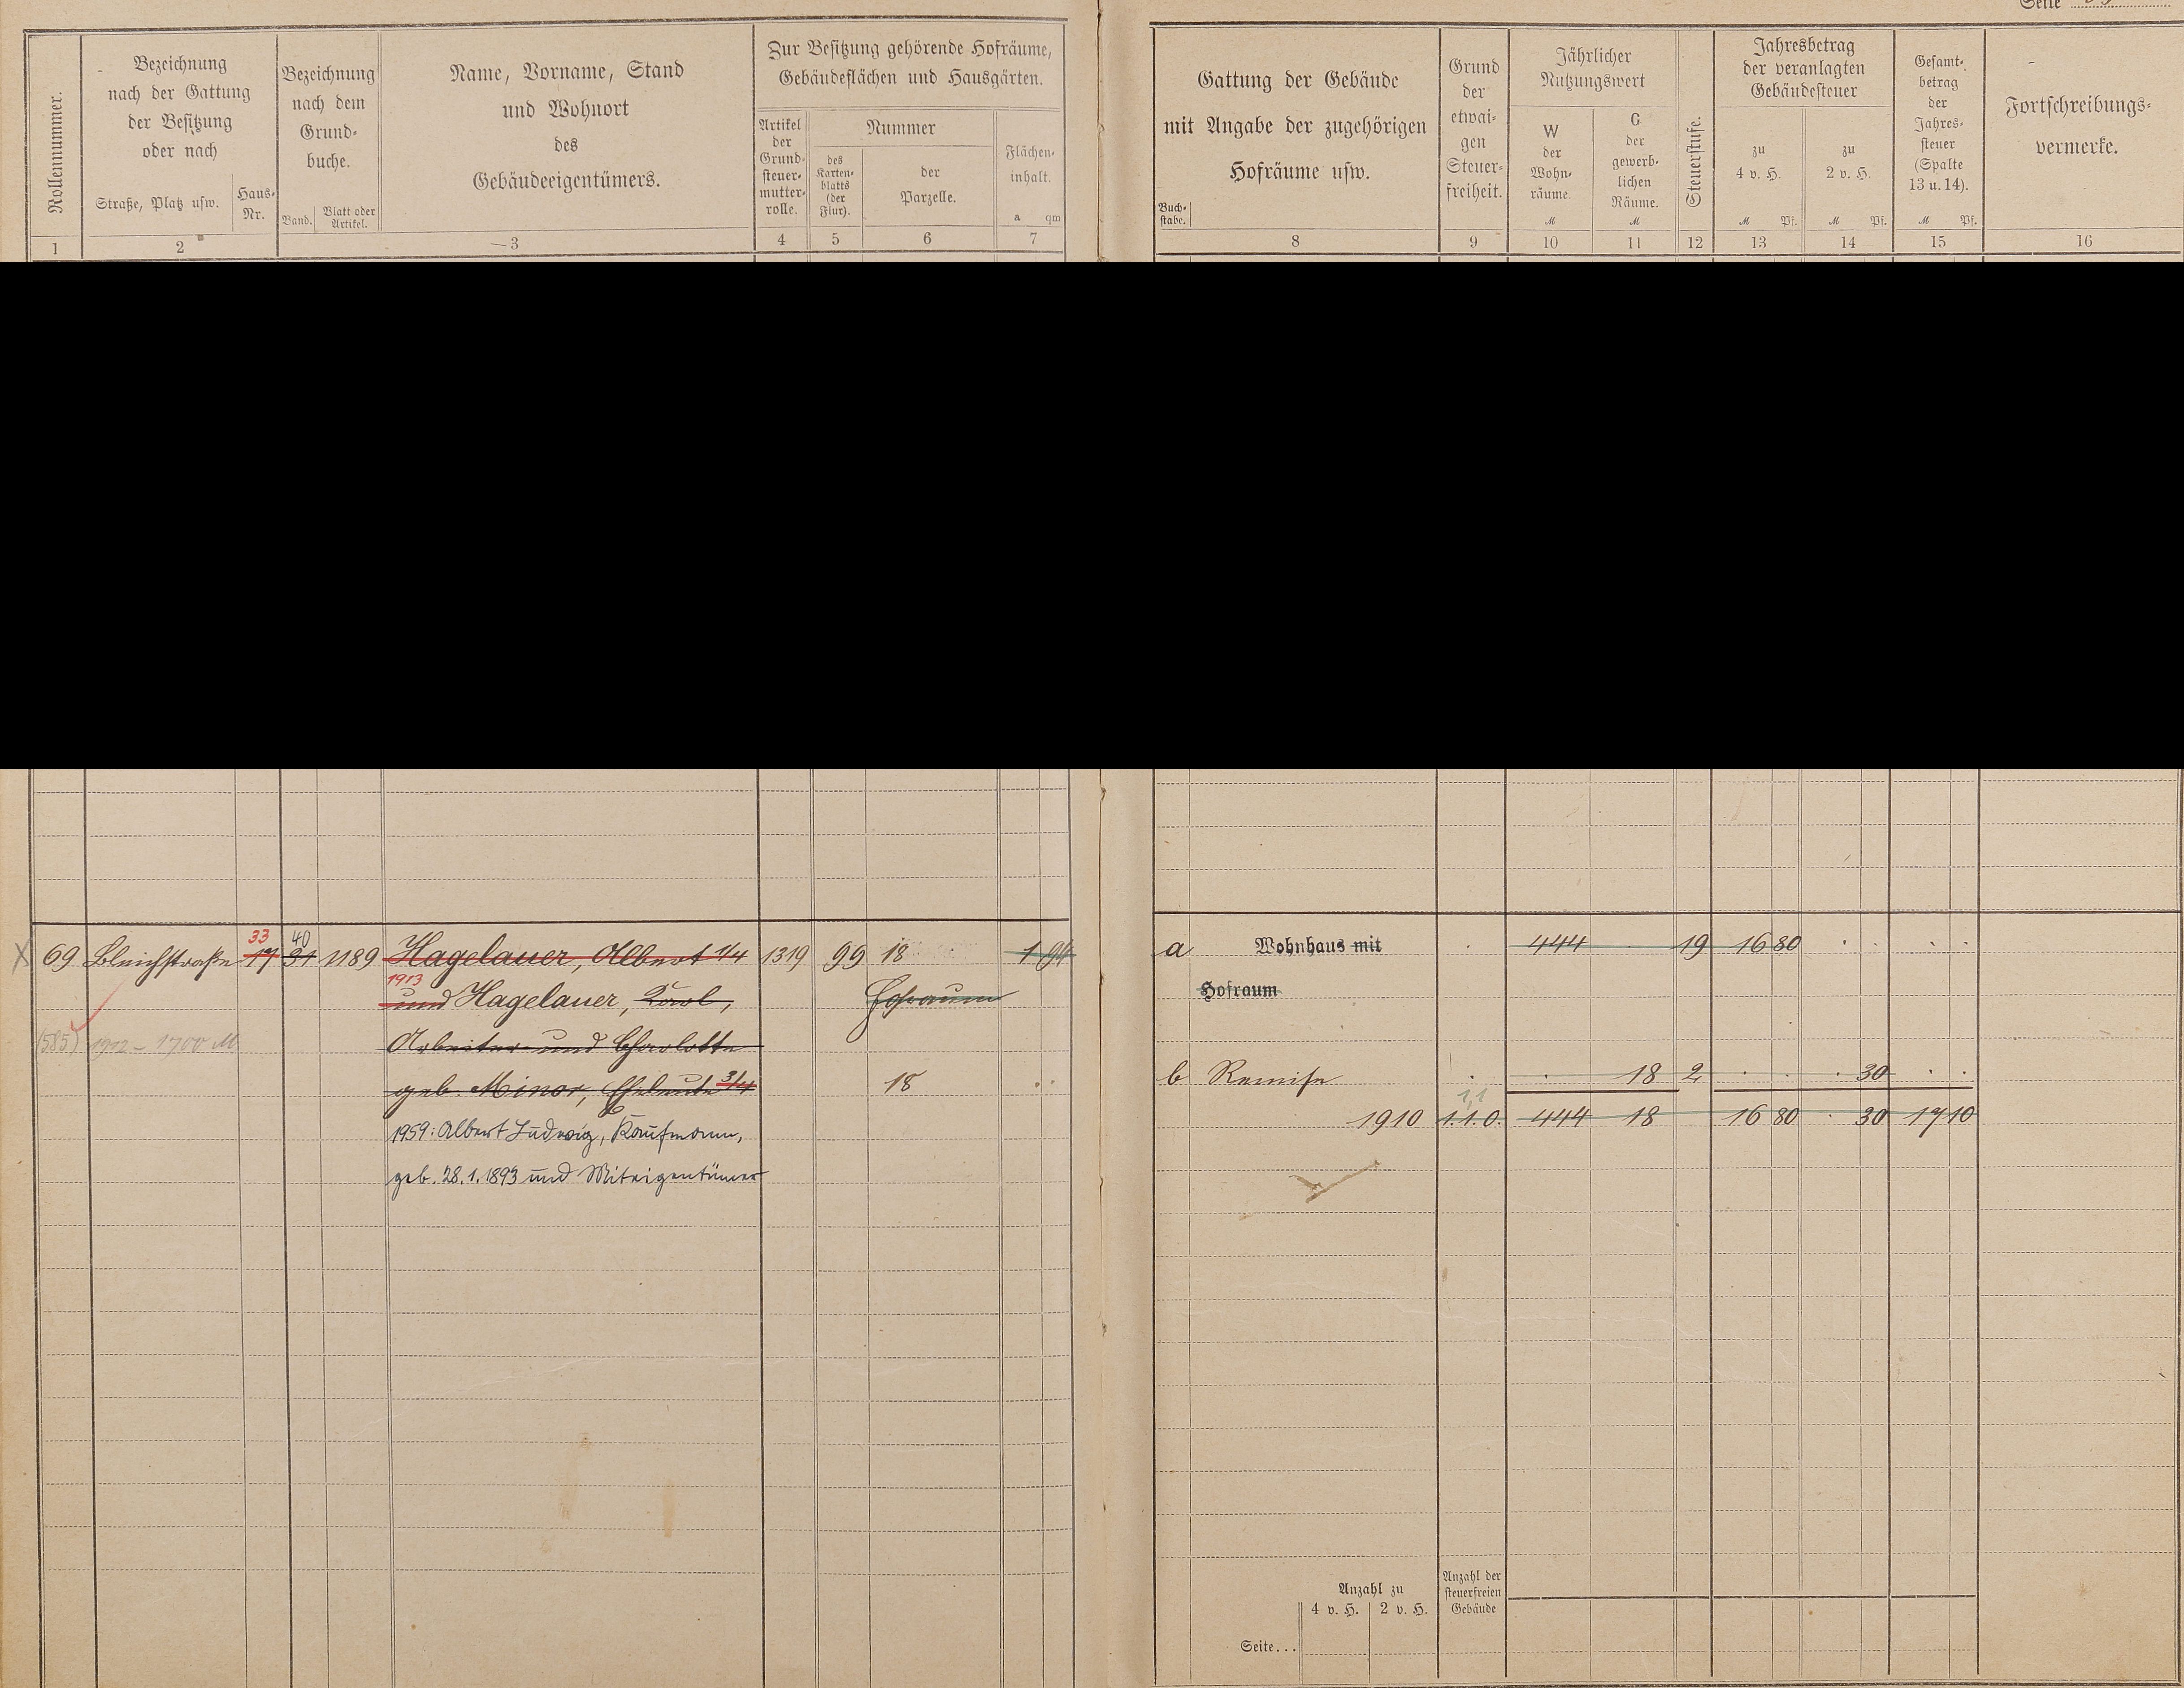 Seite
Rollennummer.
Bezeichnung
nach der Gattung
der Besitzung
oder nach
Straße, Platz usw.
Haus-
Nr.
Bezeichnung
nach dem
Grund-
buche.
Band.
Blatt oder
Artikel.
Name, Vorname, Stand
und Wohnort
des
Gebäudeeigentümers.
Zur Besitzung gehörende Hofräume,
Gebäudeflächen und Hausgärten.
Artikel
der
Grund-
steuer-
mutter-
rolle.
Nummer
des
Karten-
blatts
(der
Flur).
der
Parzelle.
Flächen-
inhalt.
a qm
1 2 3 4 5 6 7
Gattung der Gebäude
mit Angabe der zugehörigen
Hofräume usw.
Buch-
stabe.
Grund
der
etwai-
gen
Steuer-
freiheit.
Jährlicher
Nutzungswert
W
der
Wohn-
räume.
M
G
der
gewerb-
lichen
Räume.
M
Steuerstufe.
Jahresbetrag
der veranlagten
Gebäudesteuer
zu
4 v. H.
M Pf.
zu
2 v. H.
M Pf.
Gesamt-
betrag
der
Jahres-
steuer
(Spalte
13 u. 14).
M Pf.
Fortschreibungs-
vermerke.
8 9 10 11 12 13 14 15 16
33 40
X 69 Bleichstraße 17 31 1189 Hagelauer, Albert 1/4 1319 99 18 1 94
1913
und Hagelauer, Karl, Hofraum
(585) 1902 – 1700 M Arbeiter und Charlotte
geb. Minor, Eheleute 3/4 18
1959: Albert Ludwig, Kaufmann,
geb. 28.1.1893 und Miteigentümer
a Wohnhaus mit 444 19 16 80
Hofraum
b Remise 18 2 30
1,1
1910 1.1.0. 444 18 16 80 30 17 10
Anzahl zu
4 v. H. 2 v. H.
Anzahl der
steuerfreien
Gebäude
Seite...